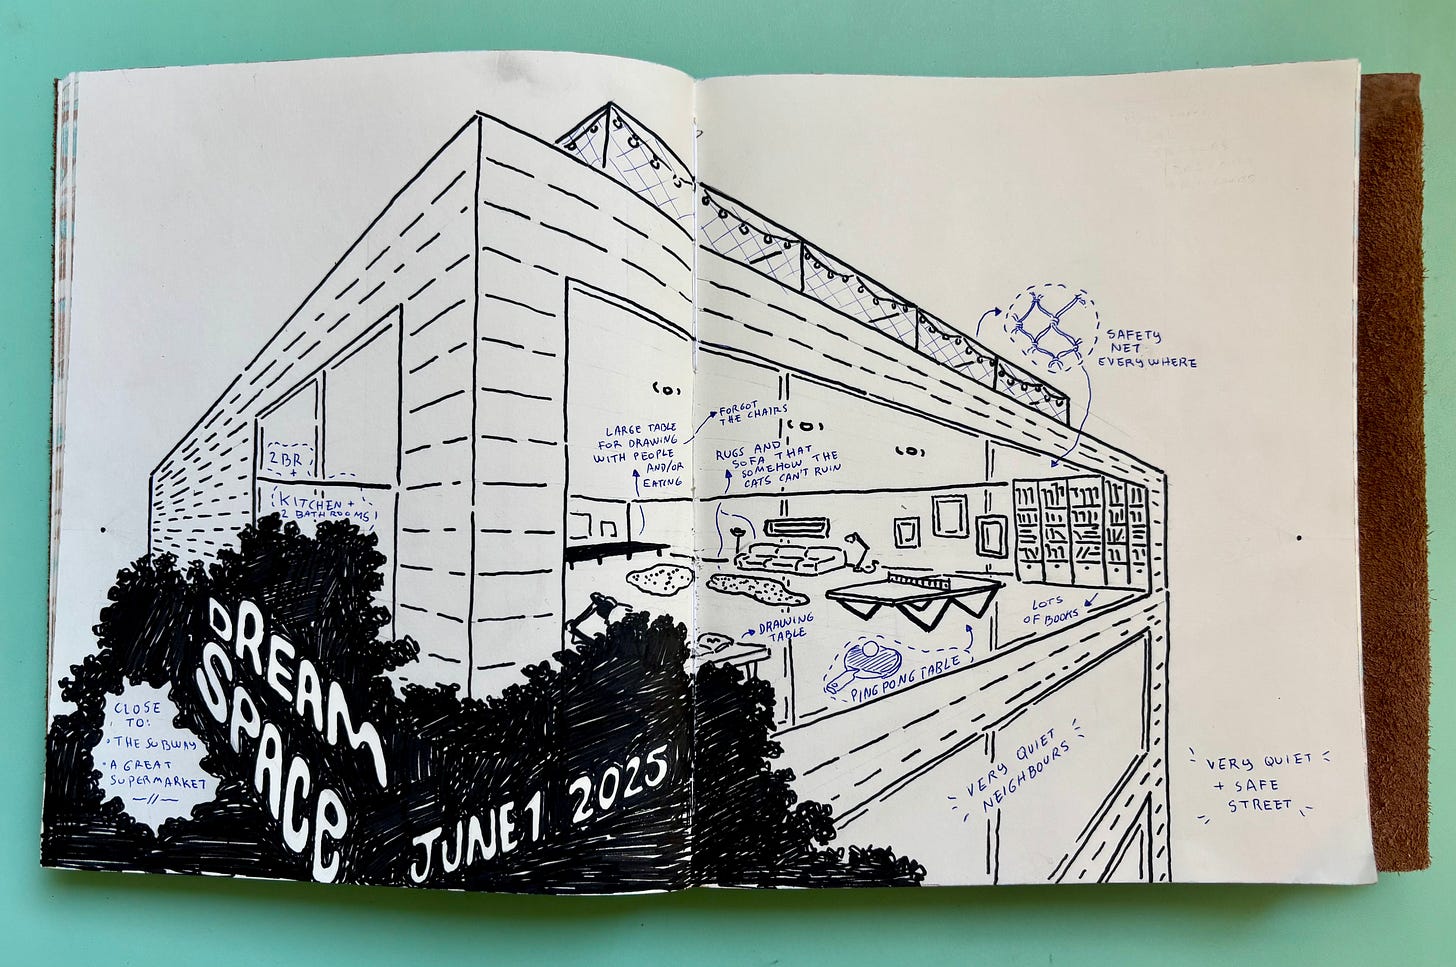 SAFETY
NET
EVERYWHERE
FORGOT
THE CHAIRS
LARGE TABLE
FOR DRAWING
WITH PEOPLE
AND/OR
EATING
RUGS AND
SOFA THAT
SOMEHOW THE
CATS CAN'T RUIN
2 BR
+
KITCHEN +
2 BATHROOMS
LOTS
OF BOOKS
DRAWING
TABLE
PING PONG TABLE
DREAM
SPACE
JUNE 1 2025
CLOSE
TO:
· THE SUBWAY
· A GREAT
SUPERMARKET
VERY QUIET
NEIGHBOURS
VERY QUIET
+ SAFE
STREET